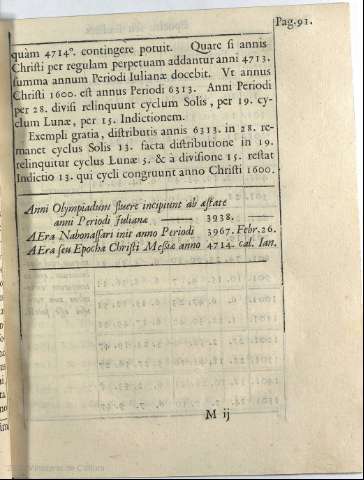 Pag.91.
quàm 4714°. contingere potuit. Quare si annis
Christi per regulam perpetuam addantur anni 4713.
summa annum Periodi Iulianæ docebit. Vt annus
Christi 1600. est annus Periodi 6313. Anni Periodi
per 28. divisi relinquunt cyclum Solis, per 19. cy-
clum Lunæ, per 15. Indictionem.
Exempli gratia, distributis annis 6313. in 28. re-
manet cyclus Solis 13. facta distributione in 19.
relinquitur cyclus Lunæ 5. & à divisione 15. restat
Indictio 13. qui cycli congruunt anno Christi 1600.
Anni Olympiadum fluere incipiunt ab æstate
anni Periodi Iulianæ —— 3938. ——
AEra Nabonassari init anno Periodi 3967. Febr. 26.
AEra seu Epocha Christi Messiæ anno 4714. cal. Ian.
M ij
Ministerio de Cultura